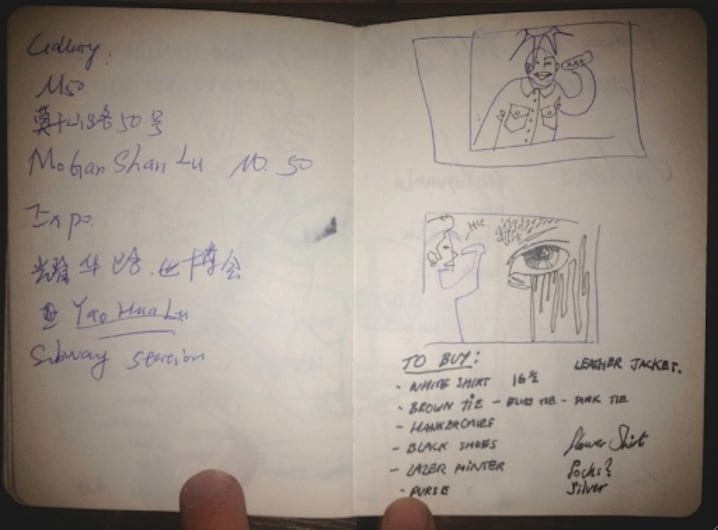 Gallery.
M50
莫干山路50号
MoGanShan Lu NO. 50
Expo.
耀华路.世博会
Yao Hua Lu
Subway station
xxx
HIC
TO BUY:
LEATHER JACKET.
- WHITE SHIRT 16½
- BROWN TIE - BLUE TIE - PINK TIE
- HANKERCHIEF
- BLACK SHOES
flower Shirt
- LAZER POINTER
Socks?
- PURSE
Silver